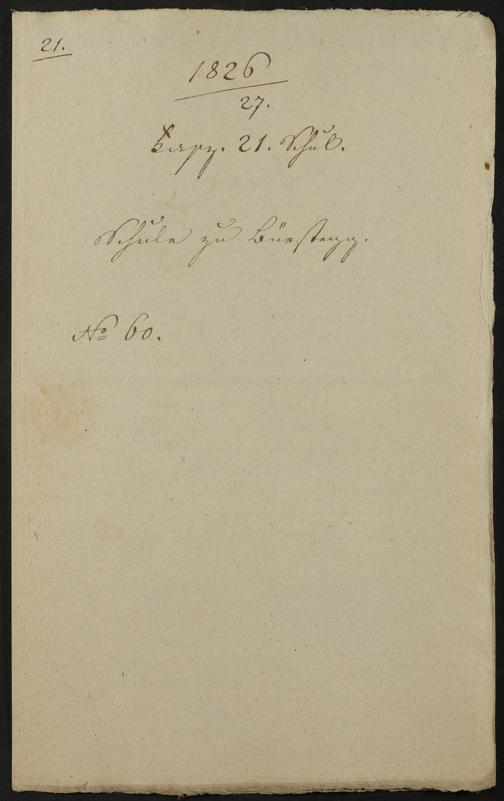 21.
1826
27.
Kapp. 21. Schul.
Schule zu Bürstegg.
No 60.